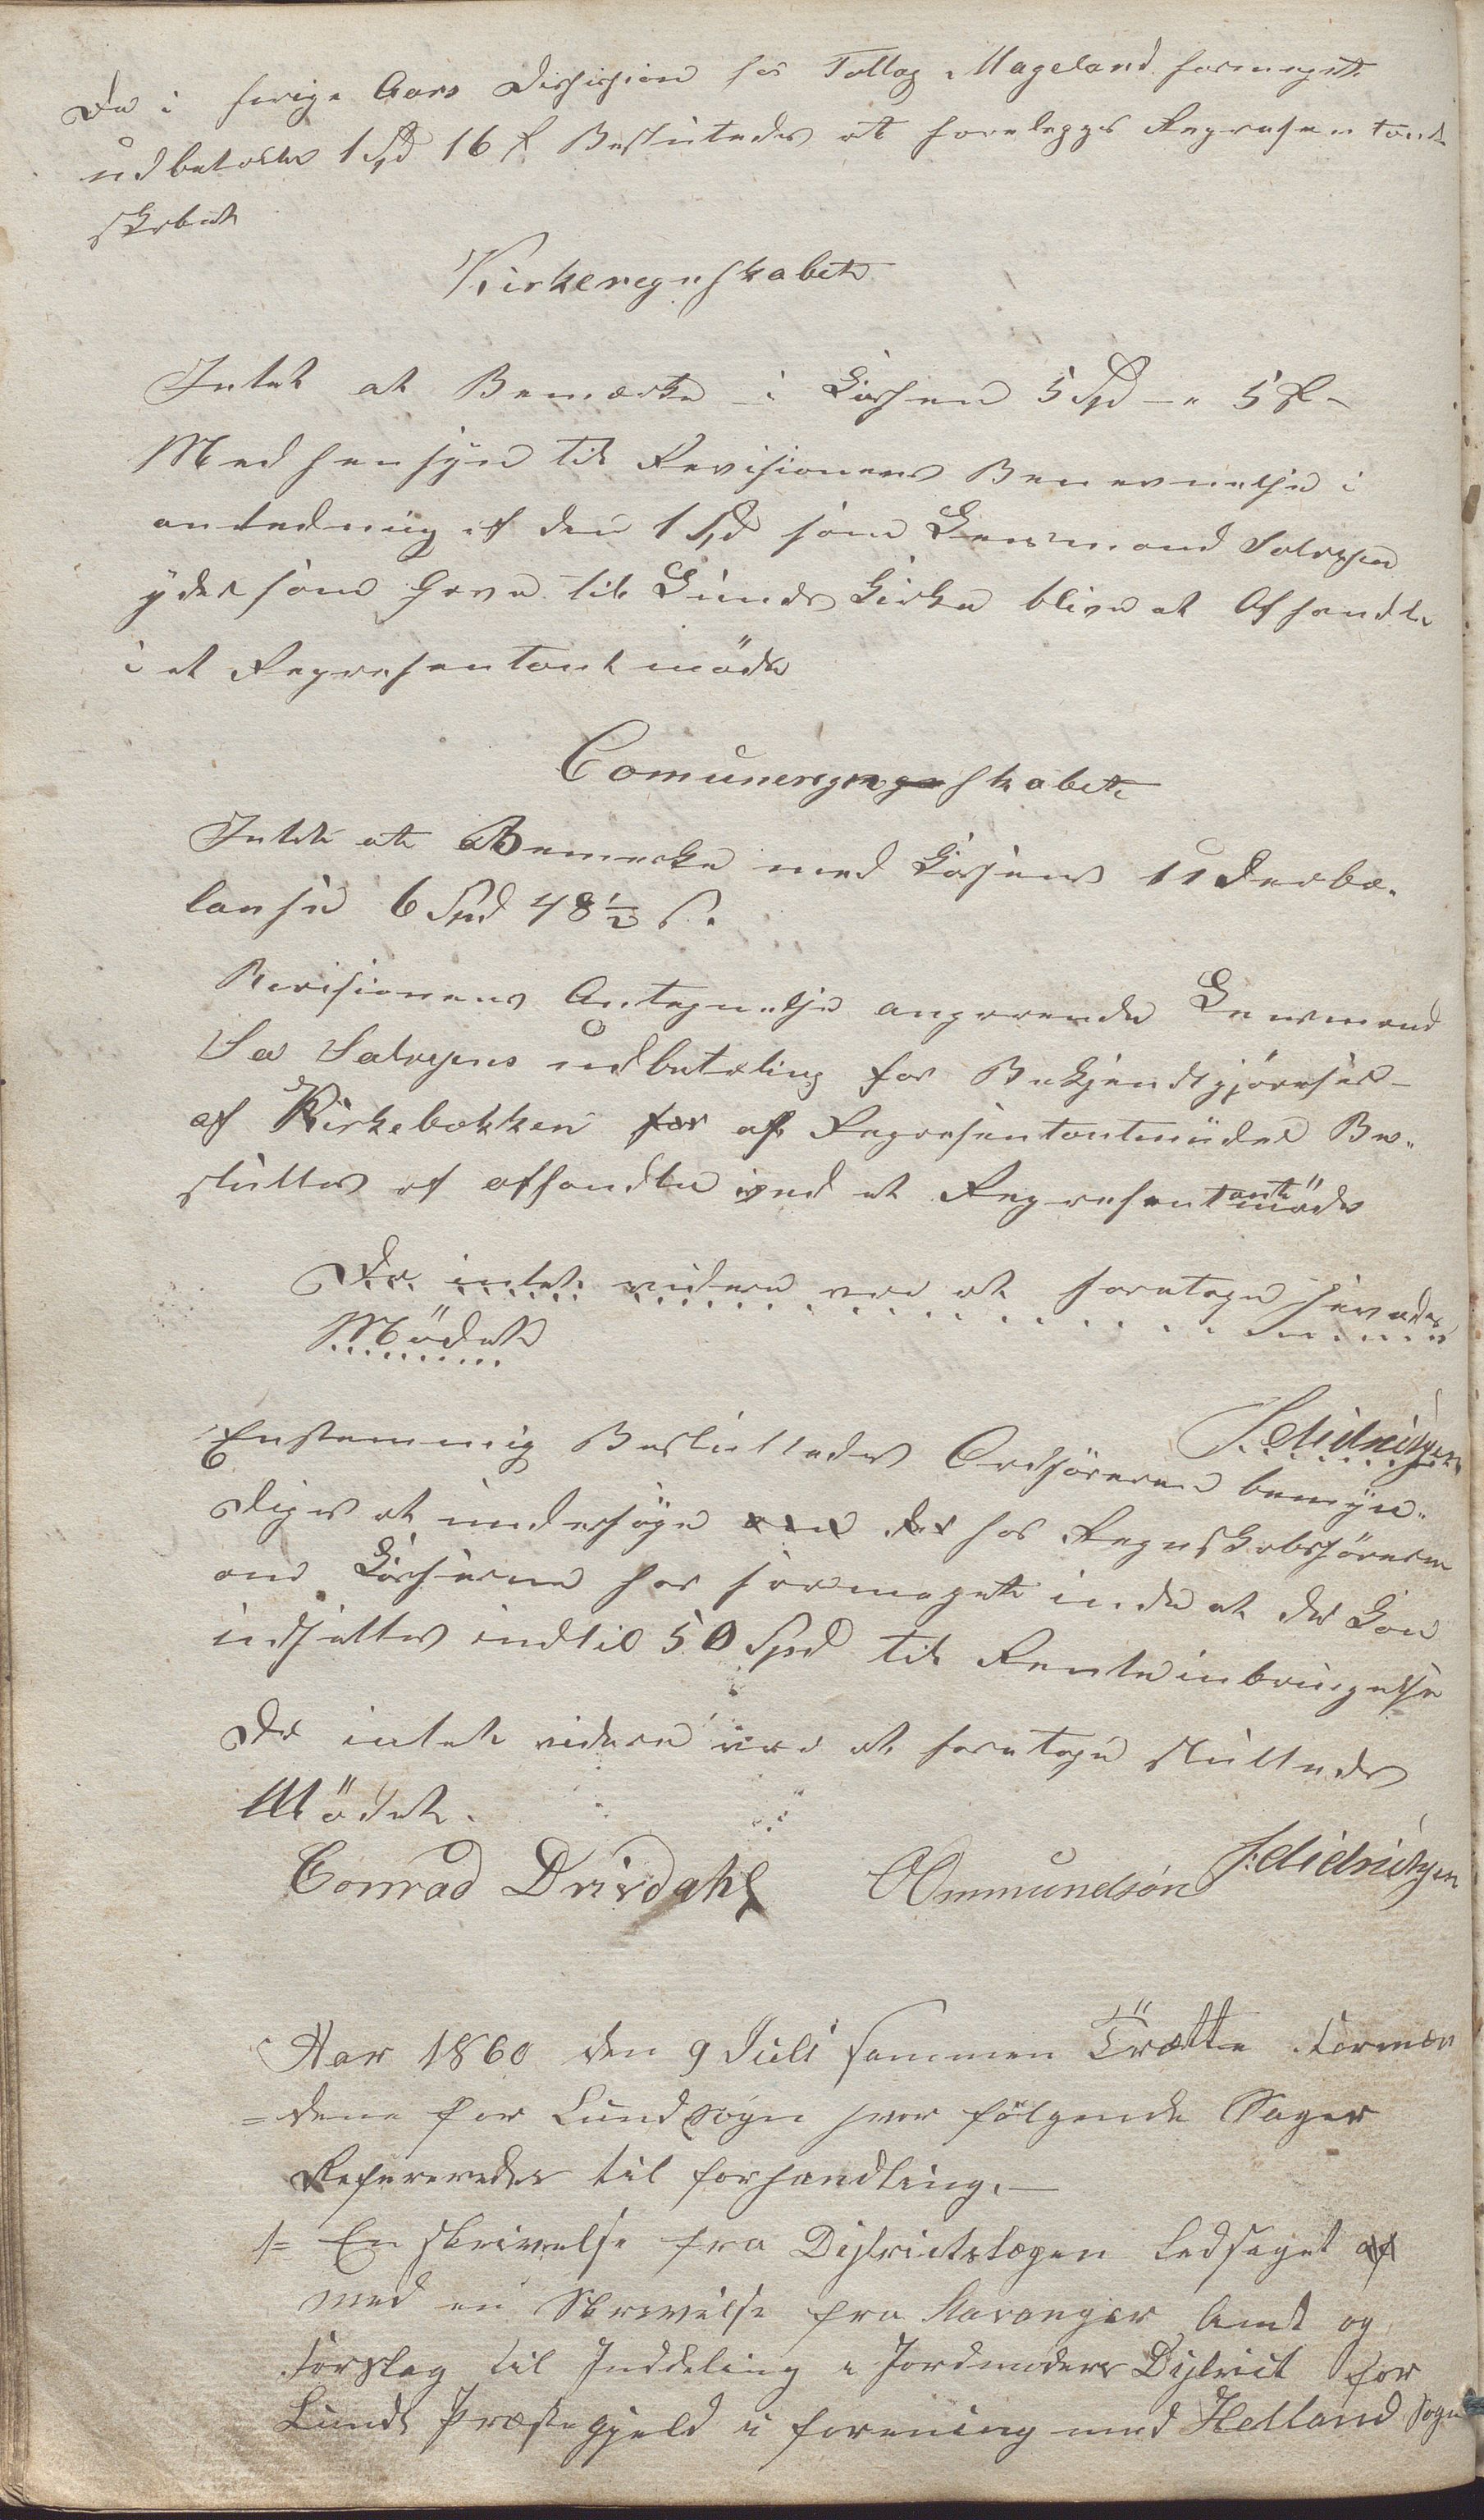 Da i forige Aars Decision hos Tollag Mageland formeget
udbetales 1 Spd 16 ß Besluttedes at forelegges Represen tant
skabet
Kirkeregnskabet
Intet at Bemærke i Kassen 5 Spd - " 5 ß -
Med hensyn til Revisionens Benevnelse i
anledning af den 1 Spd som Lensmand Salvesen
yder som Gave til Lunds Kirke bliver at Afhandle
i et Representantmöde
Comuneregnskabet
Intet at Bemerke med Kassens underba-
lanse 6 Spd 48 1/2 ß.
Revisionens Antegnelse angaaende Lensmand
Sa Salvesens udbetaling for Bekjendtgjörelser
af Kirkebakken for af Representantmödet Be-
sluttes at afhandles ved et Representantmöde
Da intet videre var at foretage hevedes
Mödet
J. Didricksen
Enstemmig Besluttedes Ordföreren bemyn-
diges at undersöge om der hos Regnskabsförerne
om Kasserne har formeget inde at det Kan
indsettes indtil 50 Spd til Renteinbringelse
Da intet videre var at foretage sluttedes
Mödet.
Conrad Drivdahl OOmmundsön J. didricksen
Aar 1860 den 9 Juli sammen Trædtte Formæn
=dene for Lund Sogn hvor fölgende Sager
Refereredes til forhandling. -
1= En skrivelse fra Districtslægen ledsaget af
med en Skrivelse fra Stavanger Amt og
Forslag til Inddeling i Jordmoders District for
Lunds Præstegjeld i forening med Helland Sogn